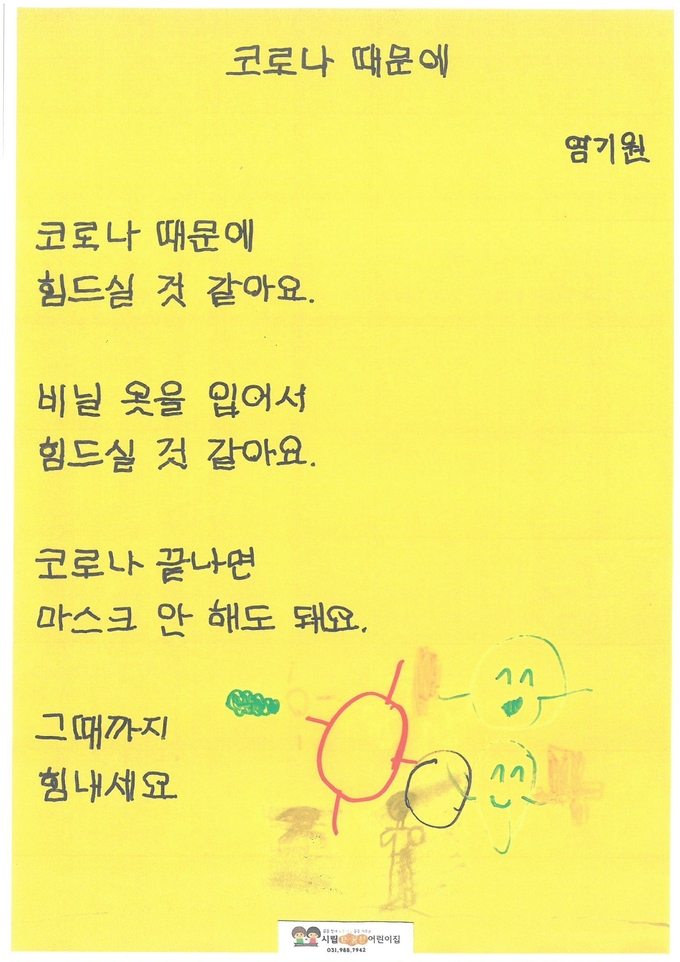 코로나 때문에
염기원
코로나 때문에
힘드실 것 같아요.
비닐 옷을 입어서
힘드실 것 같아요.
코로나 끝나면
마스크 안 해도 돼요.
그때까지
힘내세요
시립 어린이집
031.988.7942